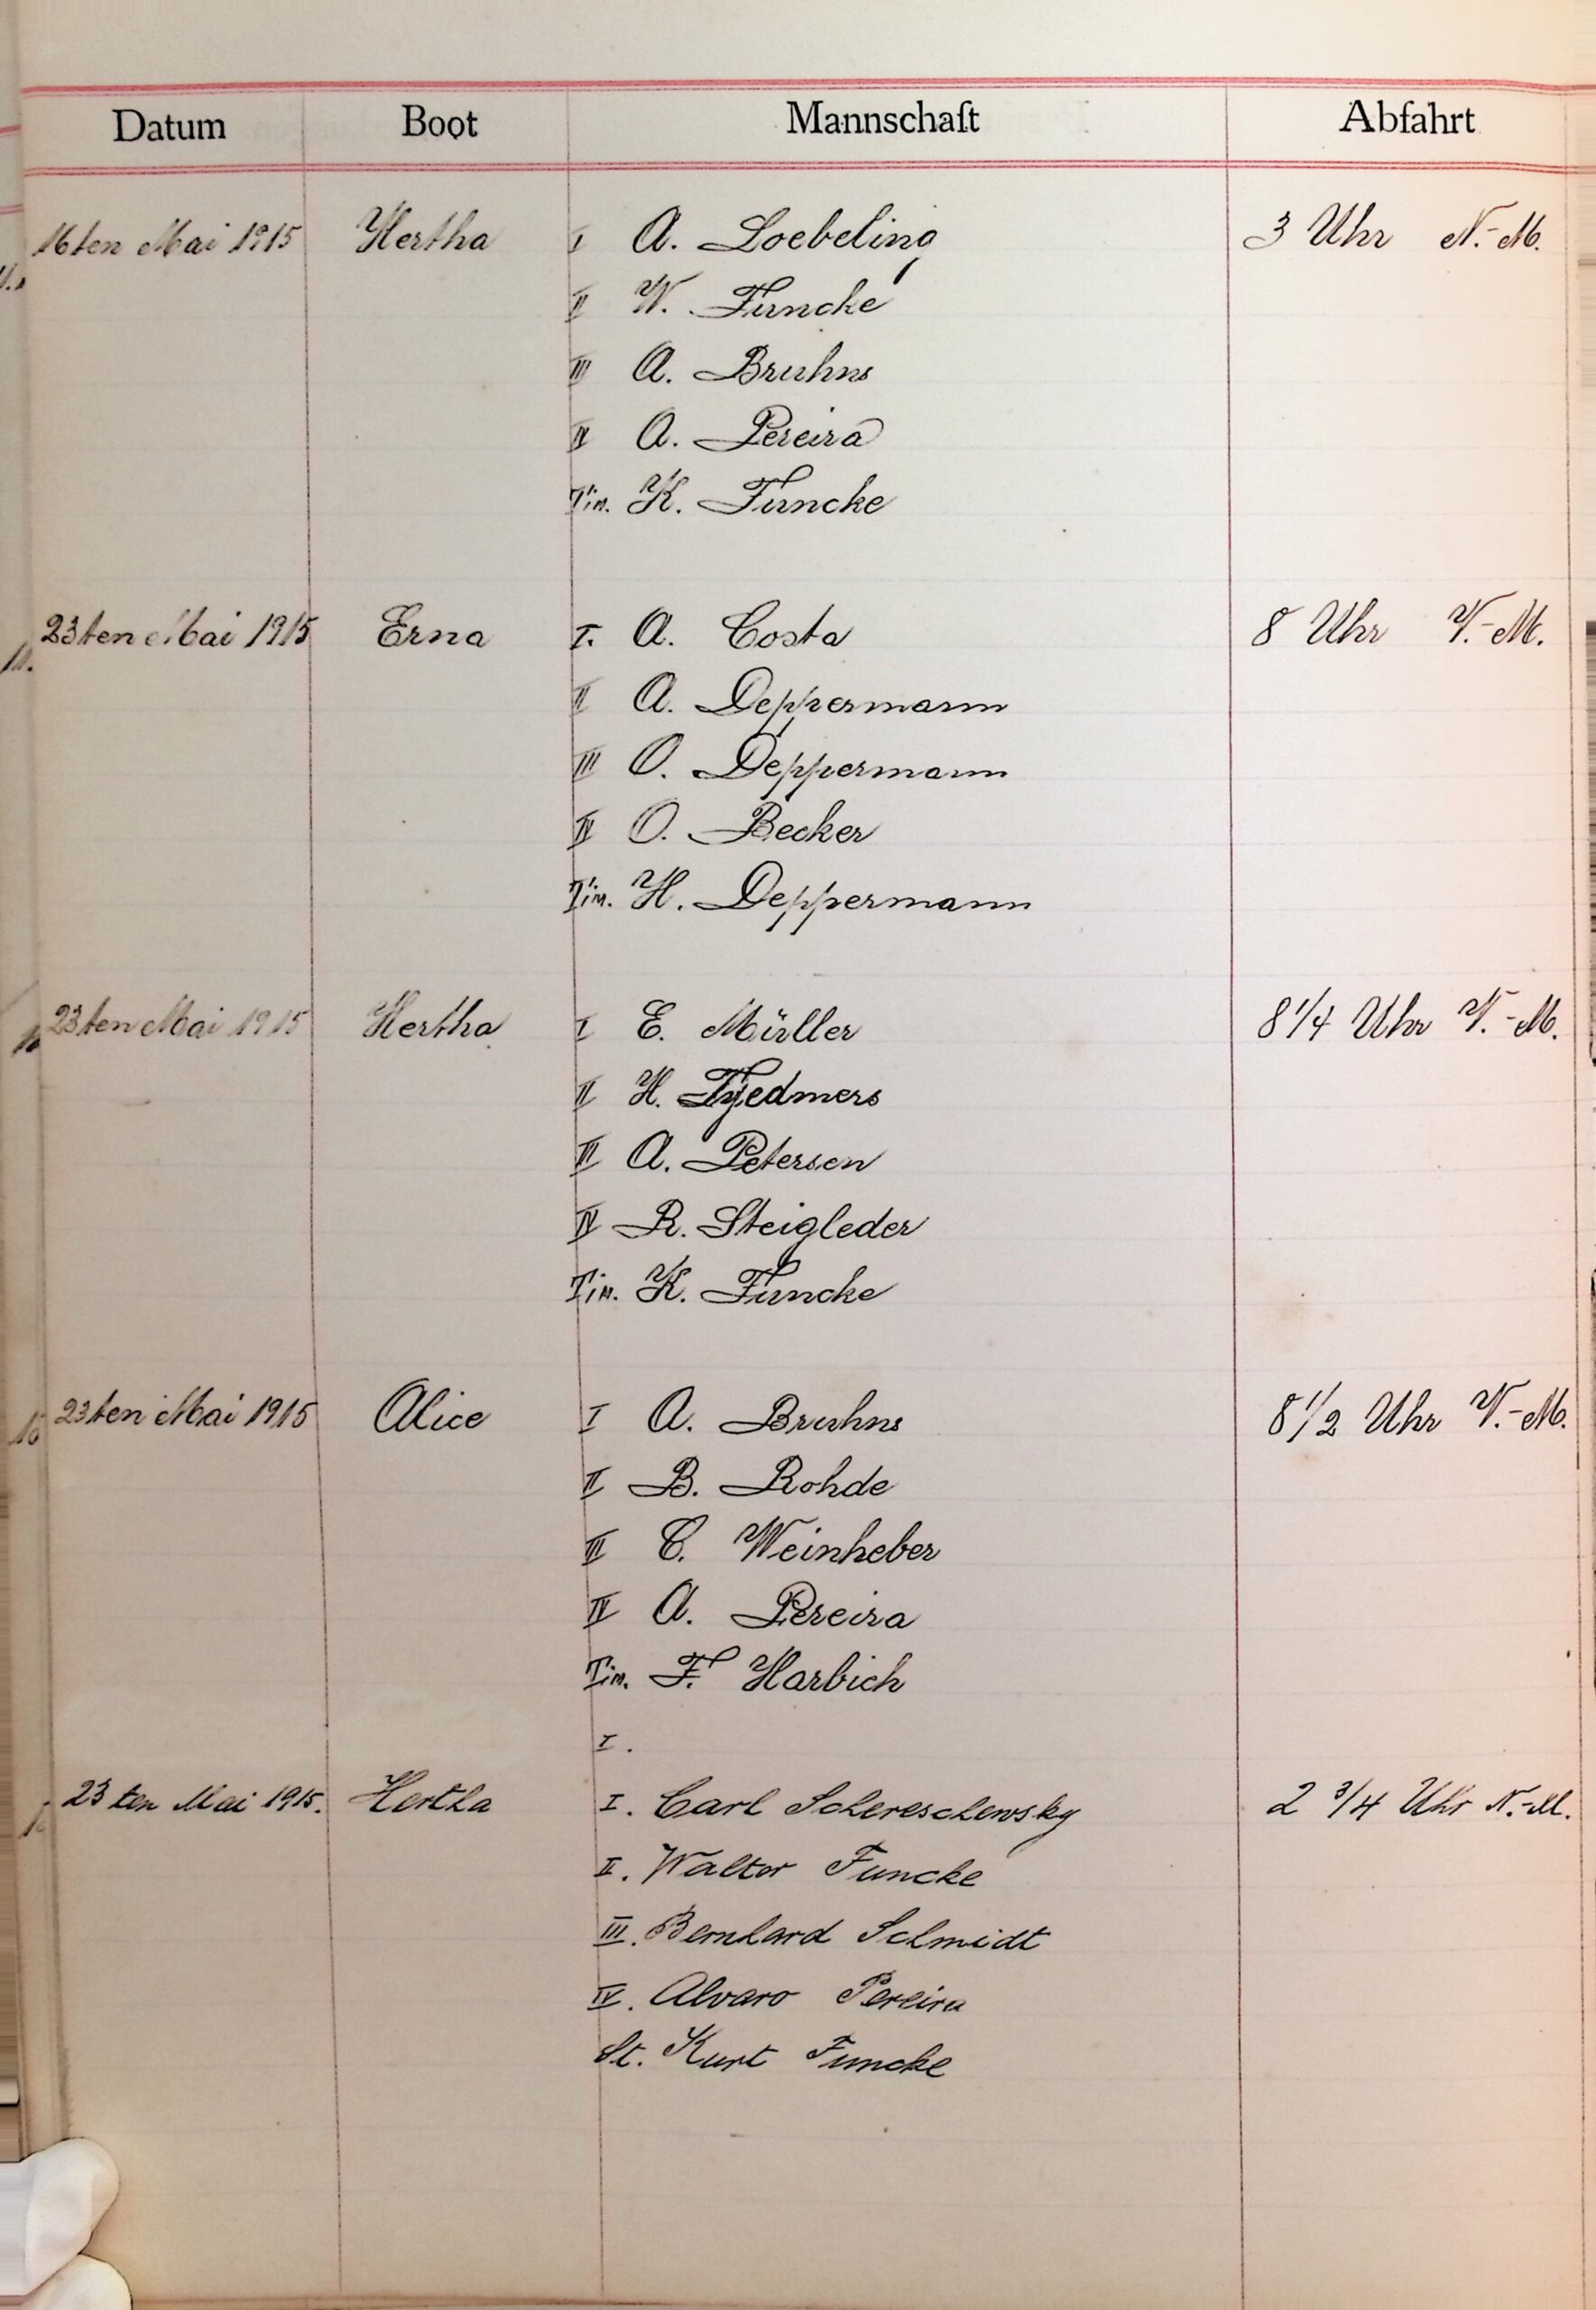 Datum Boot Mannschaft Abfahrt
16ten Mai 1915 Hertha I A. Loebeling 3 Uhr N.-M.
II W. Funcke
III A. Bruhns
IV A. Pereira
Tim. K. Funcke
23ten Mai 1915 Erna I. A. Costa 8 Uhr V.-M.
II A. Deppermann
III O. Deppermann
IV O. Becker
Tim. H. Deppermann
23ten Mai 1915 Hertha I E. Müller 8 1/4 Uhr V.-M.
II H. Tjedmers
III A. Petersen
IV R. Steigleder
Tim. K. Funcke
23ten Mai 1915 Alice I A. Bruhns 8 1/2 Uhr V.-M.
II B. Rohde
III C. Weinheber
IV A. Pereira
Tim. F. Harbich
I.
23ten Mai 1915. Hertha I. Carl Schereschewsky 2 3/4 Uhr N.-M.
II. Walter Funcke
III. Bernhard Schmidt
IV. Alvaro Pereira
St. Kurt Funcke